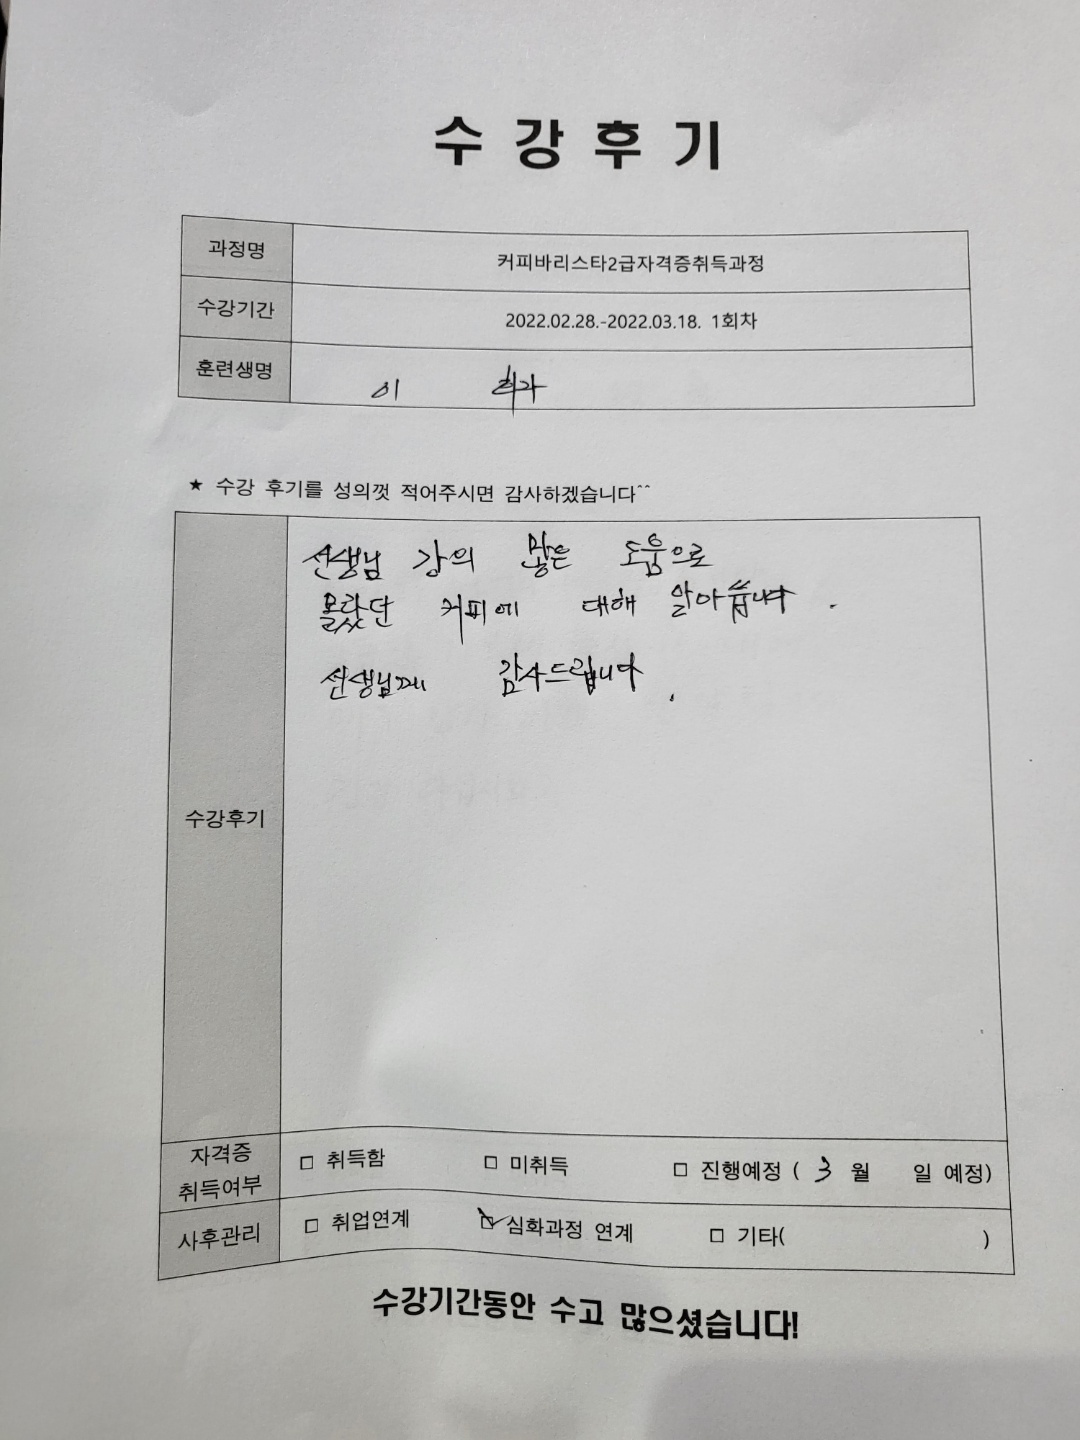 수 강 후 기
과정명 커피바리스타2급자격증취득과정
수강기간 2022.02.28.-2022.03.18. 1회차
훈련생명 이
★ 수강 후기를 성의껏 적어주시면 감사하겠습니다^^
선생님 강의 많은 도움으로
몰랐던 커피에 대해 알아씁니다.
선생님께 감사드립니다.
수강후기
자격증
취득여부
□ 취득함 □ 미취득 □ 진행예정 ( 3 월 일 예정)
사후관리 □ 취업연계 ☑ 심화과정 연계 □ 기타( )
수강기간동안 수고 많으셨습니다!